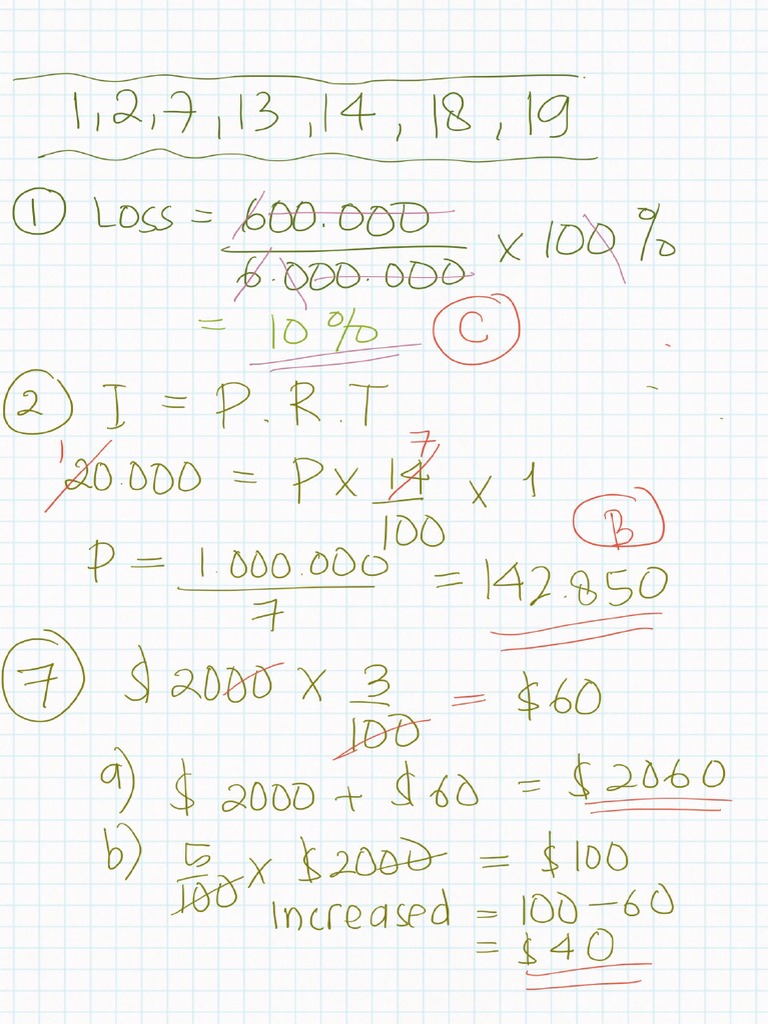 1, 2, 7, 13, 14, 18, 19
① Loss = 600.000 / 6.000.000 × 100 %
= 10 % C
② I = P. R. T
1 7
20.000 = P × 14/100 × 1
P = 1.000.000 / 7 = 142.850 B
⑦ $ 2000 × 3/100 = $ 60
a) $ 2000 + $ 60 = $ 2060
b) 5/100 × $ 2000 = $ 100
Increased = 100 - 60
= $ 40